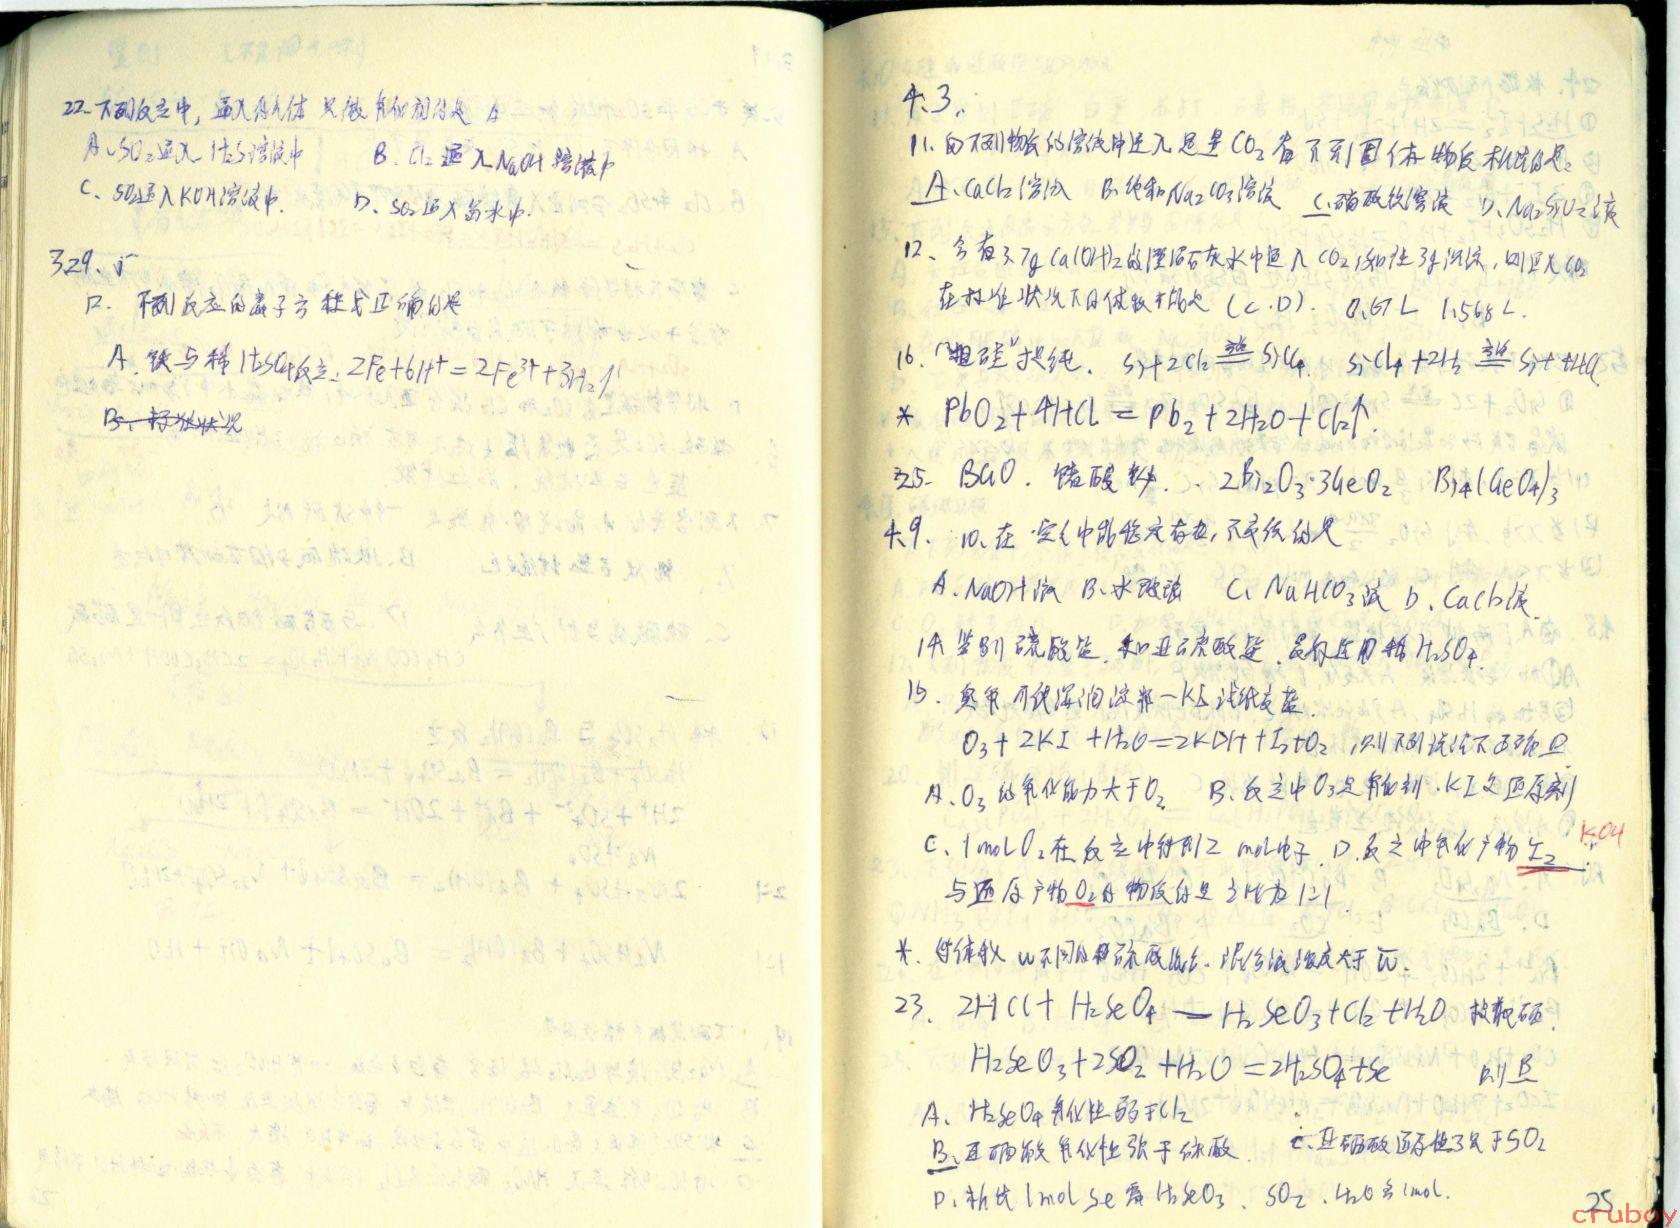 22. 下列反应中, 通入的气体只做氧化剂的是 A
A. SO2通入 H2S溶液中 B. Cl2 通入NaOH 溶液中
C. SO2通入KOH溶液中. D. SO2通入 水中.
3.29.
下列反应的离子方程式正确的是
A. 铁与稀H2SO4反应: 2Fe+6H+=2Fe3++3H2↑
4.3.
11. 向下列物质的溶液中通入过量CO2 有 固体物质析出的是
A. CaCl2溶液 B. 饱和Na2CO3溶液 C. 溶液 D. Na2SiO3液
12. 含有3.7g Ca(OH)2的澄清石灰水中通入CO2, 3g沉淀, 则通入CO2
在标准状况下的体积可能是 (C.D). 0.67L 1.568L.
16. "粗硅"提纯. Si+2Cl2 高温 SiCl4. SiCl4+2H2 高温 Si+4HCl
* PbO2+4HCl=Pb2+2H2O+Cl2↑.
325. BGO. 锗酸铋. 2Bi2O3·3GeO2 Bi4(GeO4)3
4.9. 10. 在空气中能稳定存在, 不变质的是
A. NaOH液 B. 水玻璃 C. NaHCO3液 D. CaCl2液
14. 鉴别硫酸盐和亚硫酸盐, 最好选用稀H2SO4.
15. 臭氧可使湿润淀粉-KI试纸变蓝.
O3+2KI+H2O=2KOH+I2+O2, 则下列说法不正确 D.
A. O3的氧化能力大于O2 B. 反应中O3是氧化剂. KI是还原剂
C. 1molO2在反应中得到2 mol电子. D. 反应中氧化产物I2 KOH
与还原产物O2的物质的量之比为1:1.
*. 等体积w不同的 硫酸混合. 混合液浓度大于w̄.
23. 2HCl+H2SeO4—H2SeO3+Cl2+H2O 硒.
H2SeO3+2SO2+H2O=2H2SO4+Se 则B
A. H2SeO4氧化性弱于Cl2
B. 亚硒酸氧化性强于硫酸. C. 亚硒酸还原性 于SO2
D. 析出1mol Se需H2SeO3、SO2、H2O各1mol.
25
cruboy